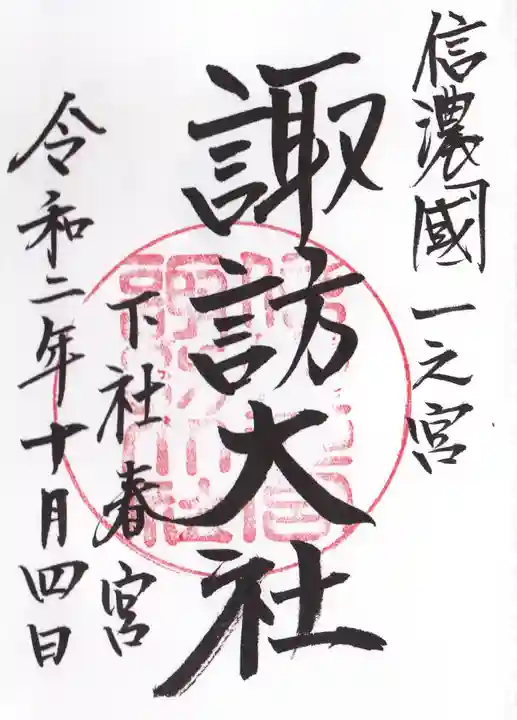 信濃國一之宮
諏訪大社
下社春宮
令和二年十月四日